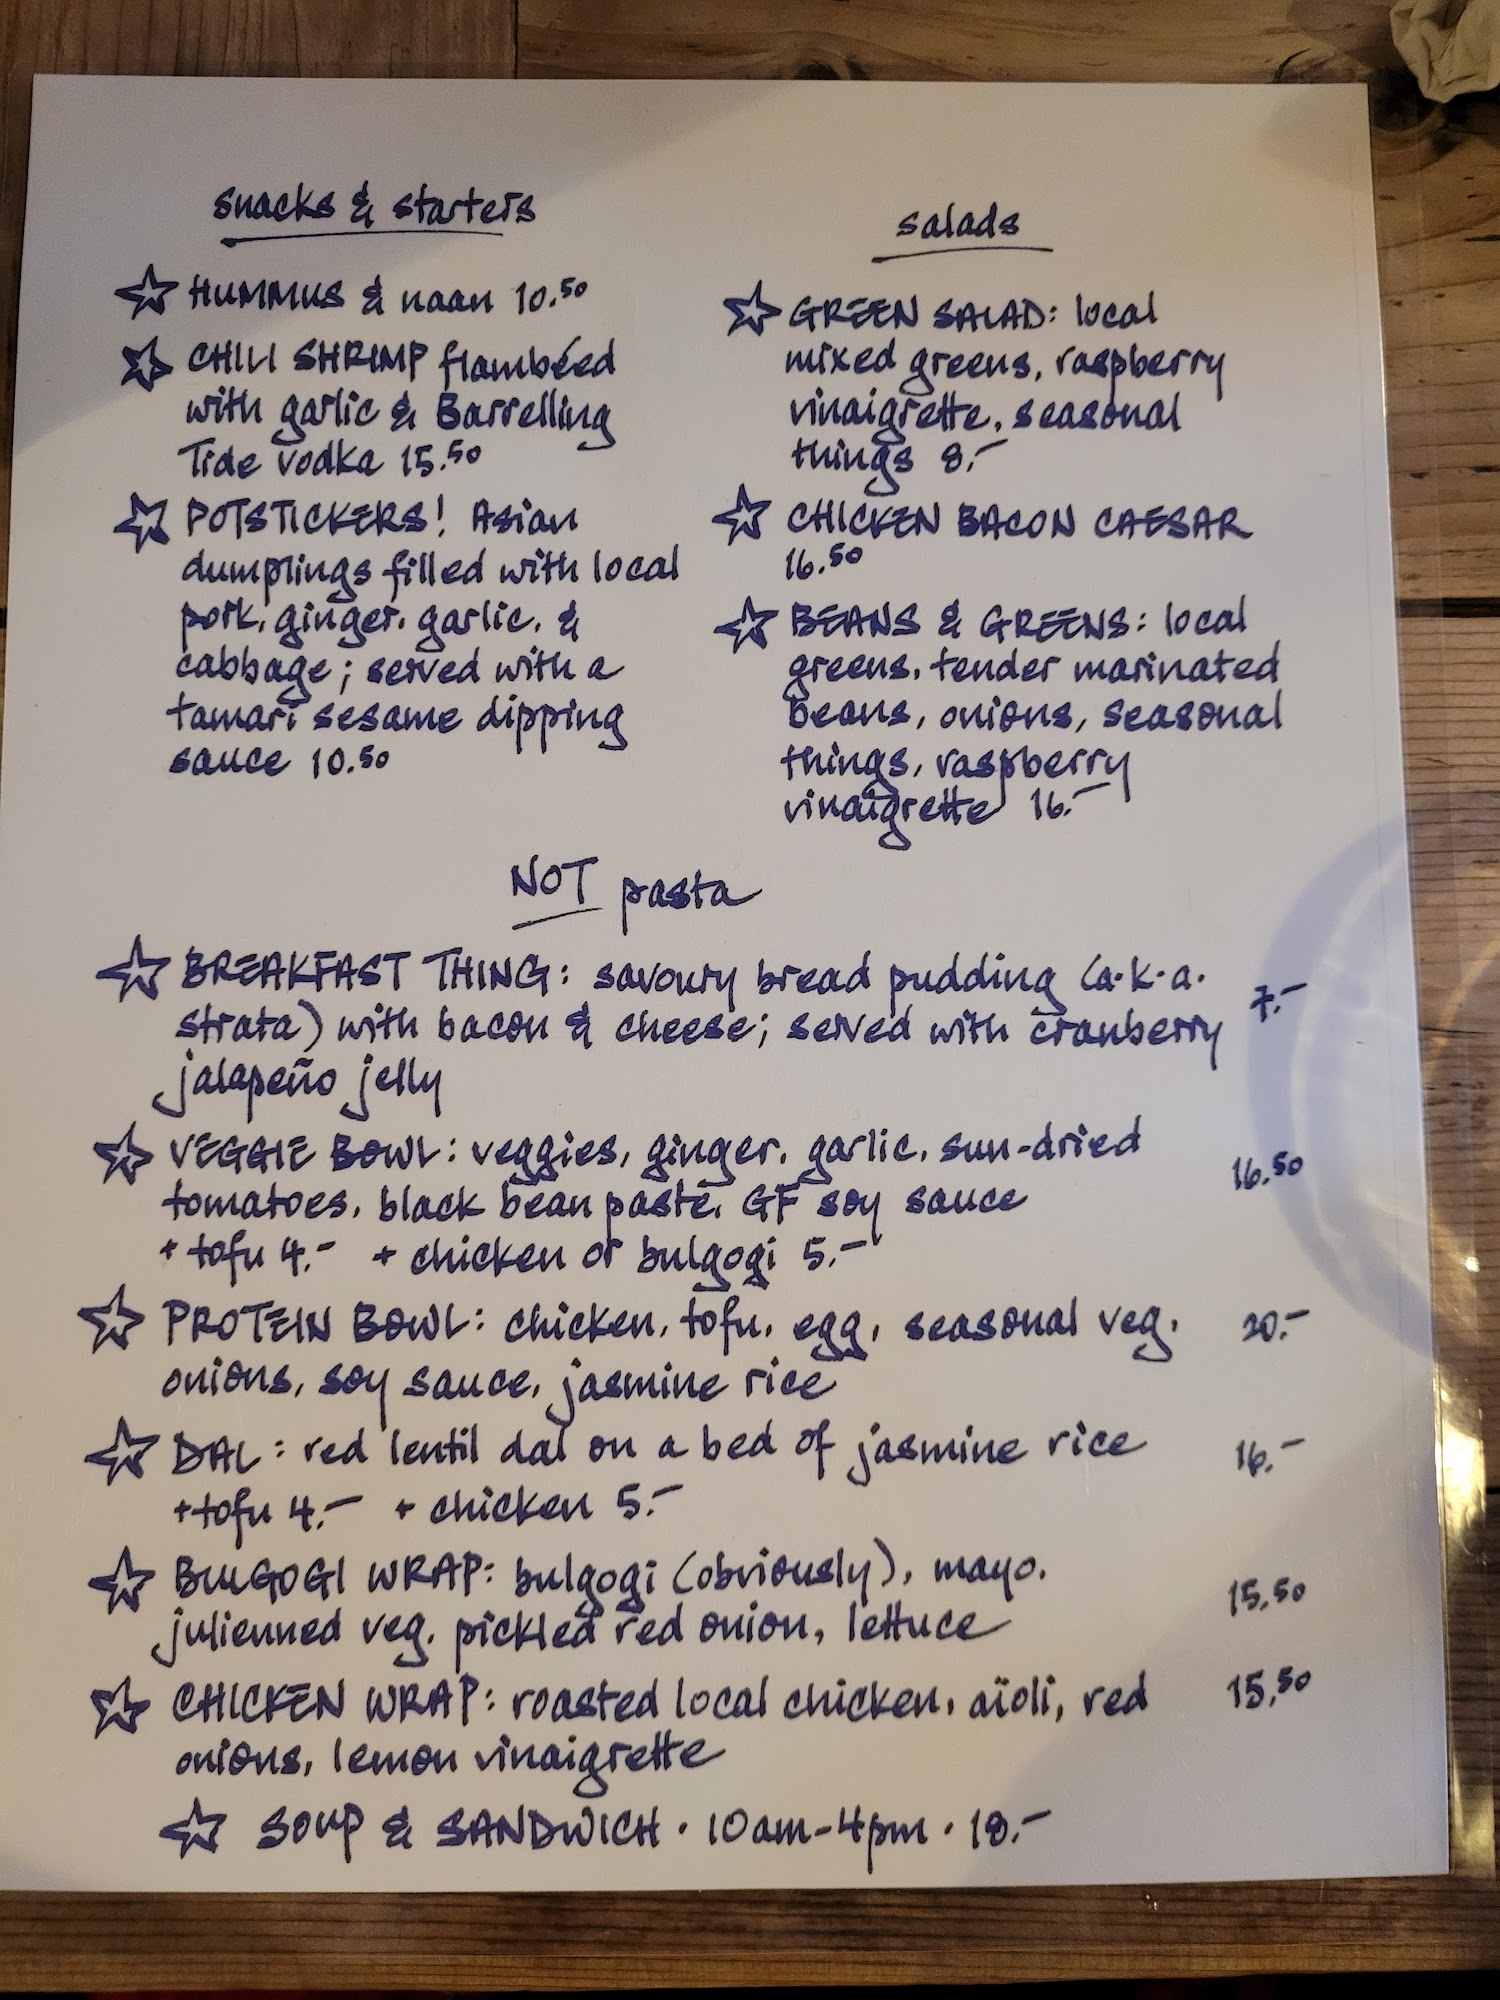 snacks & starters
☆ HUMMUS & naan 10.50
☆ CHILI SHRIMP flambéed
with garlic & Barrelling
Tide vodka 15.50
☆ POTSTICKERS! Asian
dumplings filled with local
pork, ginger, garlic, &
cabbage; served with a
tamari sesame dipping
sauce 10.50
salads
☆ GREEN SALAD: local
mixed greens, raspberry
vinaigrette, seasonal
things 8.-
☆ CHICKEN BACON CAESAR
16.50
☆ BEANS & GREENS: local
greens, tender marinated
beans, onions, seasonal
things, raspberry
vinaigrette 16.-
NOT pasta
☆ BREAKFAST THING: savoury bread pudding (a.k.a. 7.-
strata) with bacon & cheese; served with cranberry
jalapeño jelly
☆ VEGGIE BOWL: veggies, ginger, garlic, sun-dried 16.50
tomatoes, black bean paste, GF soy sauce
+ tofu 4.- + chicken or bulgogi 5.-
☆ PROTEIN BOWL: chicken, tofu, egg, seasonal veg, 20.-
onions, soy sauce, jasmine rice
☆ DAL: red lentil dal on a bed of jasmine rice 16.-
+ tofu 4.- + chicken 5.-
☆ BULGOGI WRAP: bulgogi (obviously), mayo, 15.50
julienned veg, pickled red onion, lettuce
☆ CHICKEN WRAP: roasted local chicken, aïoli, red 15.50
onions, lemon vinaigrette
☆ SOUP & SANDWICH · 10am-4pm · 18.-